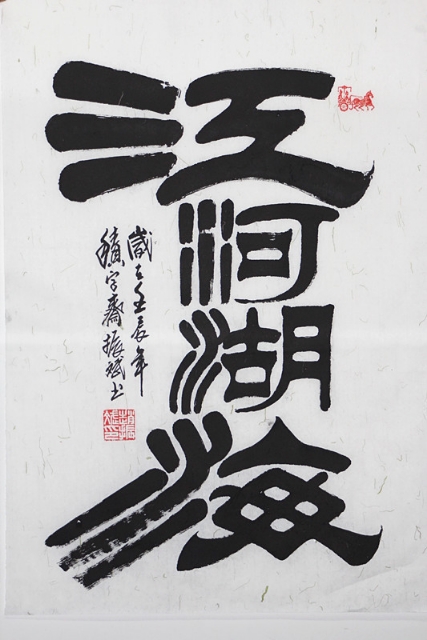 江河湖海
歲在壬辰年
積字齋振斌书